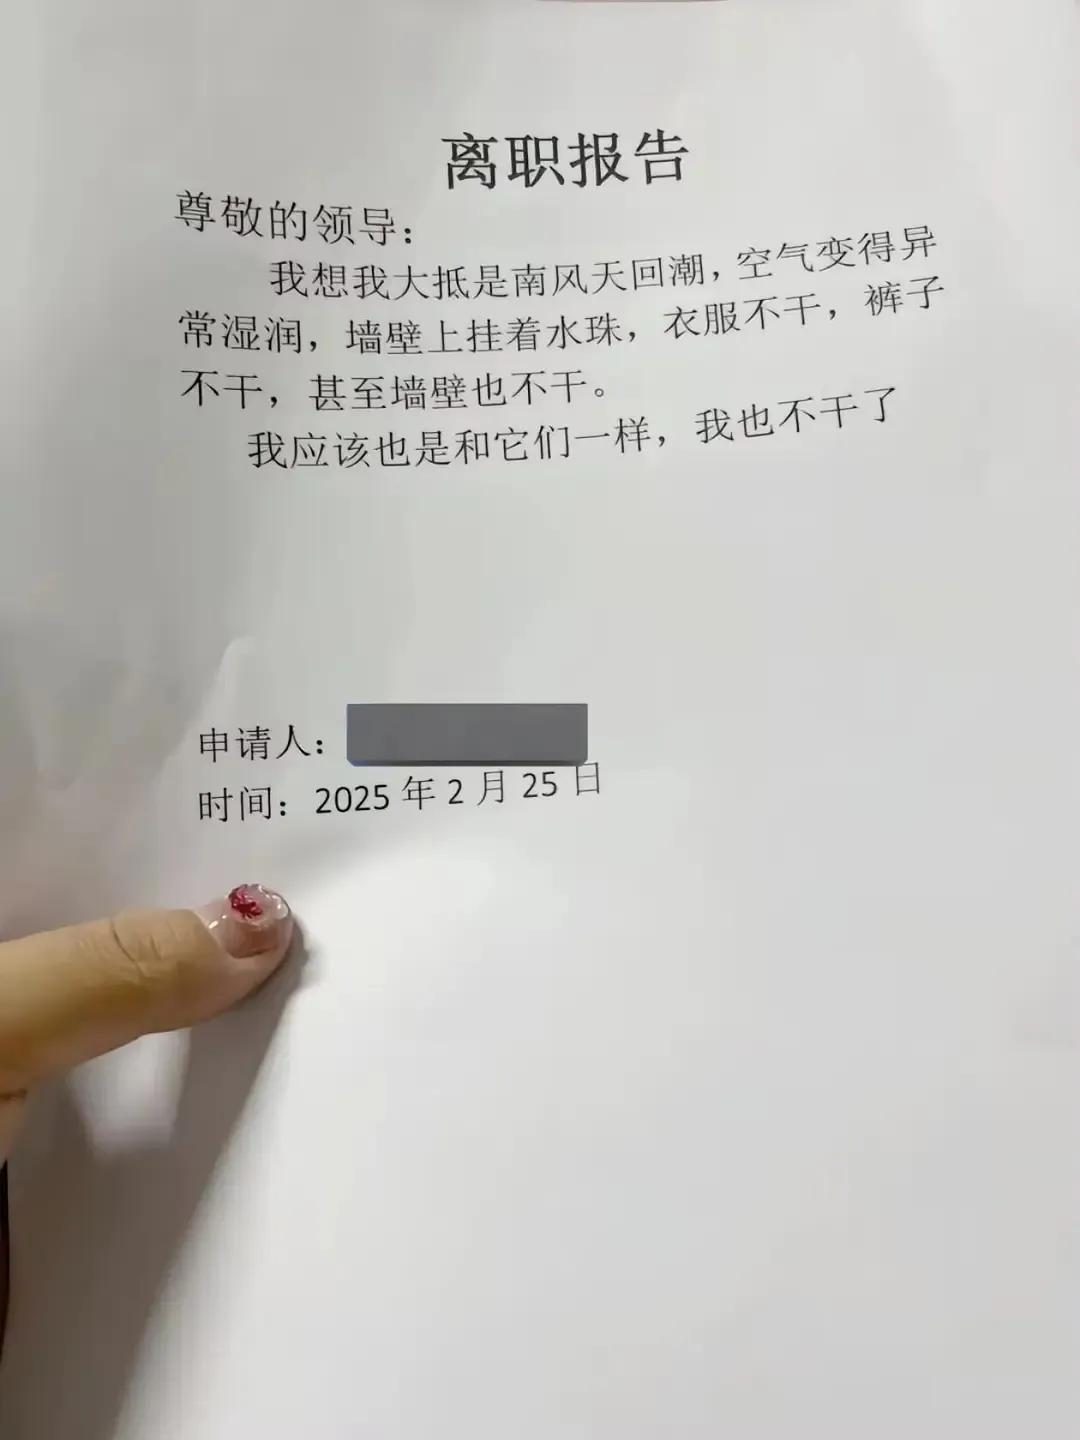 离职报告
尊敬的领导：
我想我大抵是南风天回潮，空气变得异
常湿润，墙壁上挂着水珠，衣服不干，裤子
不干，甚至墙壁也不干。
我应该也是和它们一样，我也不干了
申请人：
时间：2025年2月25日